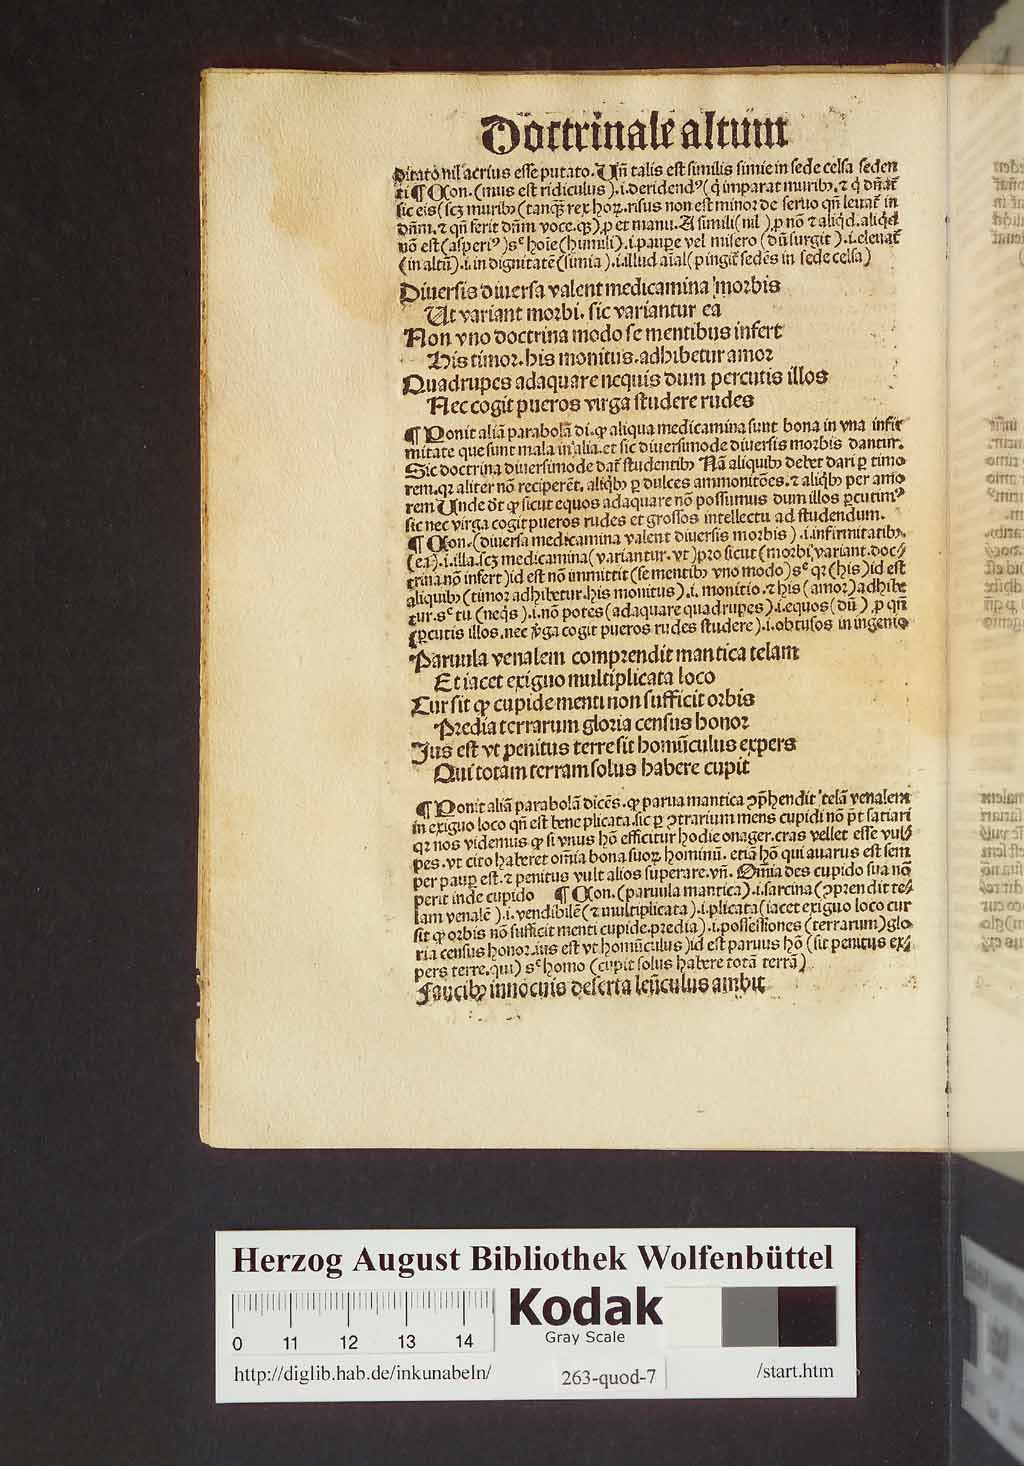 Doctrinale altum
ditato nil acrius esse putato. Un̄ talis est similis simie in sede celsa seden
ti ¶ Con. (mus est ridiculus) .i. deridendꝰ (q̇ imparat muribꝫ. ⁊ q̇ dn̄at᷑
sic eis (scꝫ muribꝫ (tanqꝫ rex hoꝝ. risus non est minor de seruo qn̄ leuat᷑ in
dn̄m. ⁊ qn̄ ferit dn̄m voce. qꝫ) .ꝓ et manu. A simili (nil) .ꝓ nō ⁊ aliqd. aliqd
nō est (asperiꝰ) sᶜ hoīe (humili) .i. paupe vel misero (dū surgit) .i. eleuat᷑
(in altū) .i. in dignitatē (simia) .i. illud aīal (pingit᷑ sedēs in sede celsa)
Diuersis diuersa valent medicamina morbis
Ut variant morbi. sic variantur ea
Non vno doctrina modo se mentibus infert
His timor. his monitus. adhibetur amor
Quadrupes adaquare nequis dum percutis illos
Nec cogit pueros virga studere rudes
¶ Ponit aliā parabolā di. ꝙ aliqua medicamina sunt bona in vna infir
mitate que sunt mala in alia. et sic diuersimode diuersis morbis dantur.
Sic doctrina diuersimode dat᷑ studentibꝫ Nā aliquibꝫ debet dari ꝑ timo
rem. qꝛ aliter nō reciperēt. aliqbꝫ ꝑ dulces ammonitōes. ⁊ aliqbꝫ per amo
rem Unde dr̄ ꝙ sicut equos adaquare nō possumus dum illos ꝑcutimꝰ
sic nec virga cogit pueros rudes et grossos intellectu ad studendum.
¶ Con. (diuersa medicamina valent diuersis morbis) .i. infirmitatibꝫ.
(ea) .i. illa. scꝫ medicamina (variantur. vt) pro sicut (morbi variant. doc⸗
trina nō infert) id est nō immittit (se mentibꝫ vno modo) sᶜ qꝛ (his) id est
aliquibꝫ (timor adhibetur. his monitus) .i. monitio. ⁊ his (amor) adhibe
tur. sᶜ tu (neqs) .i. nō potes (adaquare quadrupes) .i. equos (dū) .ꝓ qn̄
(ꝑcutis illos. nec v̇ga cogit pueros rudes studere) .i. obtusos in ingenio
Paruula venalem comprendit mantica telam
Et iacet exiguo multiplicata loco
Cur sit ꝙ cupide menti non sufficit orbis
Predia terrarum gloria census honor
Jus est vt penitus terre sit homūculus expers
Qui totam terram solus habere cupit
¶ Ponit aliā parabolā dicēs. ꝙ parua mantica ꝯp̄hendit telā venalem
in exiguo loco qn̄ est bene plicata. sic ꝑ ꝯtrarium mens cupidi nō pt̄ satiari
qꝛ nos videmus ꝙ si vnus hō efficitur hodie onager. cras vellet esse vul⸗
pes. vt cito haberet om̄ia bona suoꝝ hominū. etiā hō qui auarus est sem
per paup est. ⁊ penitus vult alios superare. vn̄. Om̄ia des cupido sua nō
perit inde cupido ¶ Con. (paruula mantica) .i. sarcina (ꝯprendit te⸗
lam venalē) .i. vendibilē (⁊ multiplicata) .i. plicata (iacet exiguo loco cur
sit ꝙ orbis nō sufficit menti cupide. predia) .i. possessiones (terrarum) glo⸗
ria census honor. ius est vt homūculus) id est paruus hō (sit penitus ex⸗
pers terre. qui) sᶜ homo (cupit solus habere totā terrā)
Faucibꝫ innocuis deserta leūculus ambit
Herzog August Bibliothek Wolfenbüttel
0 11 12 13 14
Kodak
Gray Scale
http://diglib.hab.de/inkunabeln/
263-quod-7
/start.htm